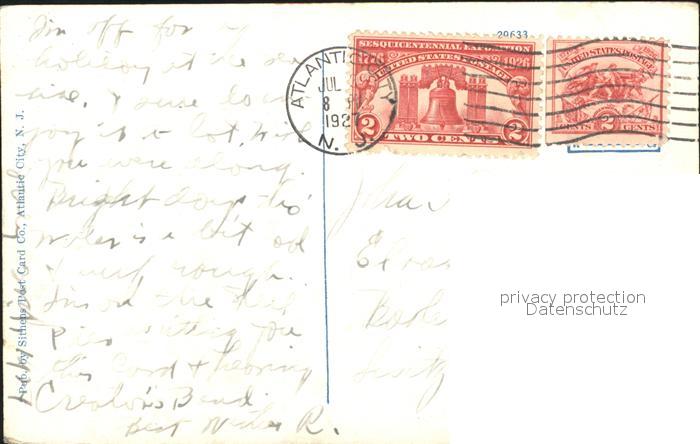 I'm off for my
holiday at the sea
side. I sure do en
joy it a lot, wish
you were along.
Bright days tho'
water is a bit cold
& very rough.
I'm on the Steel
Pier writing you
this card & hearing
Creatore's Band.
Best Wishes R.
Pub. by Sithens Post Card Co., Atlantic City, N. J.
ATLANTIC CITY
JUL
8
1927
N. J.
20633
SESQUICENTENNIAL EXPOSITION
1776 1926
UNITED STATES POSTAGE
2 TWO CENTS 2
UNITED STATES POSTAGE
CENTS 2 CENTS
privacy protection
Datenschutz